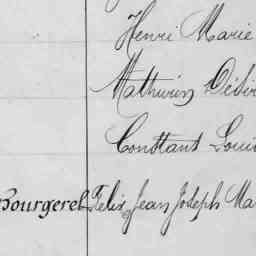 Henri Marie
Mathurin Désir
Constant Loui
Bourgerel Felix Jean Joseph Ma